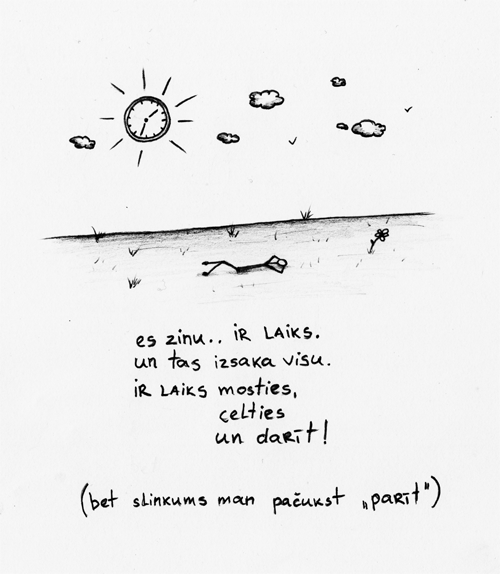 es zinu.. iR LAiKS.
un tas izsaka visu.
iR LAiKS mosties,
celties
un darīt!
(bet slinkums man pačukst „parīt")